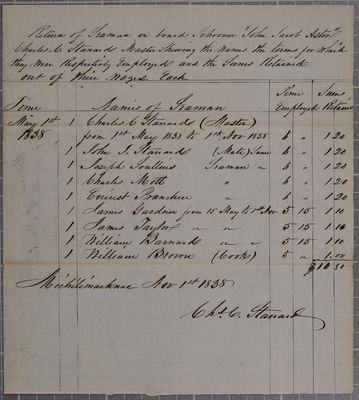 Return of Seaman on board Schooner "John Jacob Astor"
Charles C. Stanard Master Shewing the Names the terms for Which
they Were Respectively Employed and the Sums Retained
out of their Wages Each
Time Names of Seaman Time Employed Sums Retained
May 1st 1 Charles C Stanard (Master)
1838 from 1st May 1838 to 1st Nov 1838 6 " 1.20
1 John J. Stanard (Mate) Same 6 " 1.20
1 Joseph Seaman " 6 " 1.20
1 Charles Mott " 6 " 1.20
1 " 6 " 1.20
1 James Gardner from 15 May to 1st Nov 5 15 1 10
1 James Taylor " " 5 15 1 10
1 William Barnard " " 5 15 1 10
1 William Brown (Cook) 5 " 1.00
$10 30
Michilimacknac Nov 1st 1838
Chs. C. Stanard